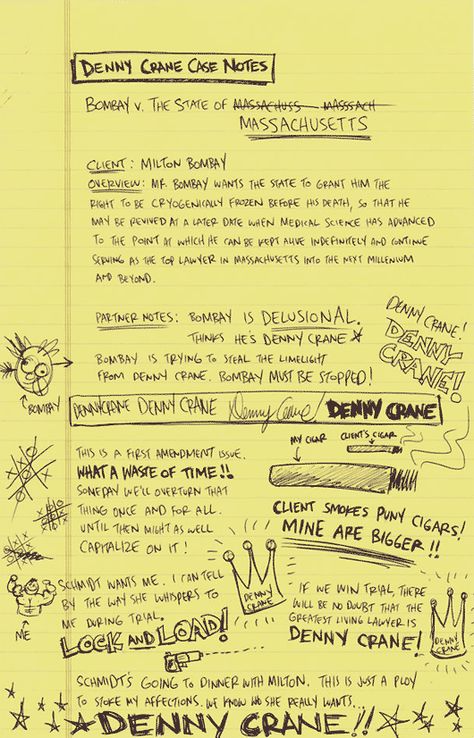 DENNY CRANE CASE NOTES
BOMBAY V. THE STATE OF MASSACHUSS MASSSACH
MASSACHUSETTS
CLIENT: MILTON BOMBAY
OVERVIEW: MR. BOMBAY WANTS THE STATE TO GRANT HIM THE
RIGHT TO BE CRYOGENICALLY FROZEN BEFORE HIS DEATH, SO THAT HE
MAY BE REVIVED AT A LATER DATE WHEN MEDICAL SCIENCE HAS ADVANCED
TO THE POINT AT WHICH HE CAN BE KEPT ALIVE INDEFINITELY AND CONTINUE
SERVING AS THE TOP LAWYER IN MASSACHUSETTS INTO THE NEXT MILLENIUM
AND BEYOND.
PARTNER NOTES: BOMBAY IS DELUSIONAL.
THINKS HE'S DENNY CRANE
BOMBAY IS TRYING TO STEAL THE LIMELIGHT
FROM DENNY CRANE. BOMBAY MUST BE STOPPED!
DENNY CRANE!
DENNY
CRANE!
BOMBAY
DENNYCRANE DENNY CRANE Denny Crane! DENNY CRANE
THIS IS A FIRST AMENDMENT ISSUE.
WHAT A WASTE OF TIME!!
SOMEDAY WE'LL OVERTURN THAT
THING ONCE AND FOR ALL.
UNTIL THEN MIGHT AS WELL
CAPITALIZE ON IT!
MY CIGAR
CLIENT'S CIGAR
CLIENT SMOKES PUNY CIGARS!
MINE ARE BIGGER!!
SCHMIDT WANTS ME. I CAN TELL
BY THE WAY SHE WHISPERS TO
ME DURING TRIAL.
LOCK AND LOAD!
ME
DENNY
CRANE
IF WE WIN TRIAL, THERE
WILL BE NO DOUBT THAT THE
GREATEST LIVING LAWYER IS
DENNY CRANE!
DENNY
CRANE
SCHMIDT'S GOING TO DINNER WITH MILTON. THIS IS JUST A PLOY
TO STOKE MY AFFECTIONS. WE KNOW WHO SHE REALLY WANTS...
DENNY CRANE!!